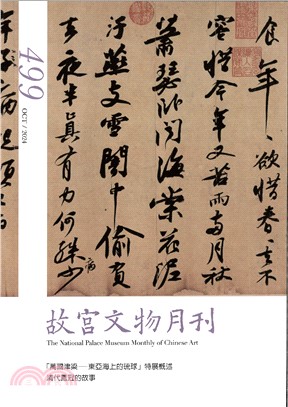 食年〻欲惜春〻去不
容惜今年又苦雨兩月秋
蕭瑟臥聞海棠花泥
汙燕支雪闇中偷負
去夜半真有力何殊少
病
499
OCT / 2024
故宮文物月刊
The National Palace Museum Monthly of Chinese Art
「萬國津梁──東亞海上的琉球」特展概述
清代鳳冠的故事